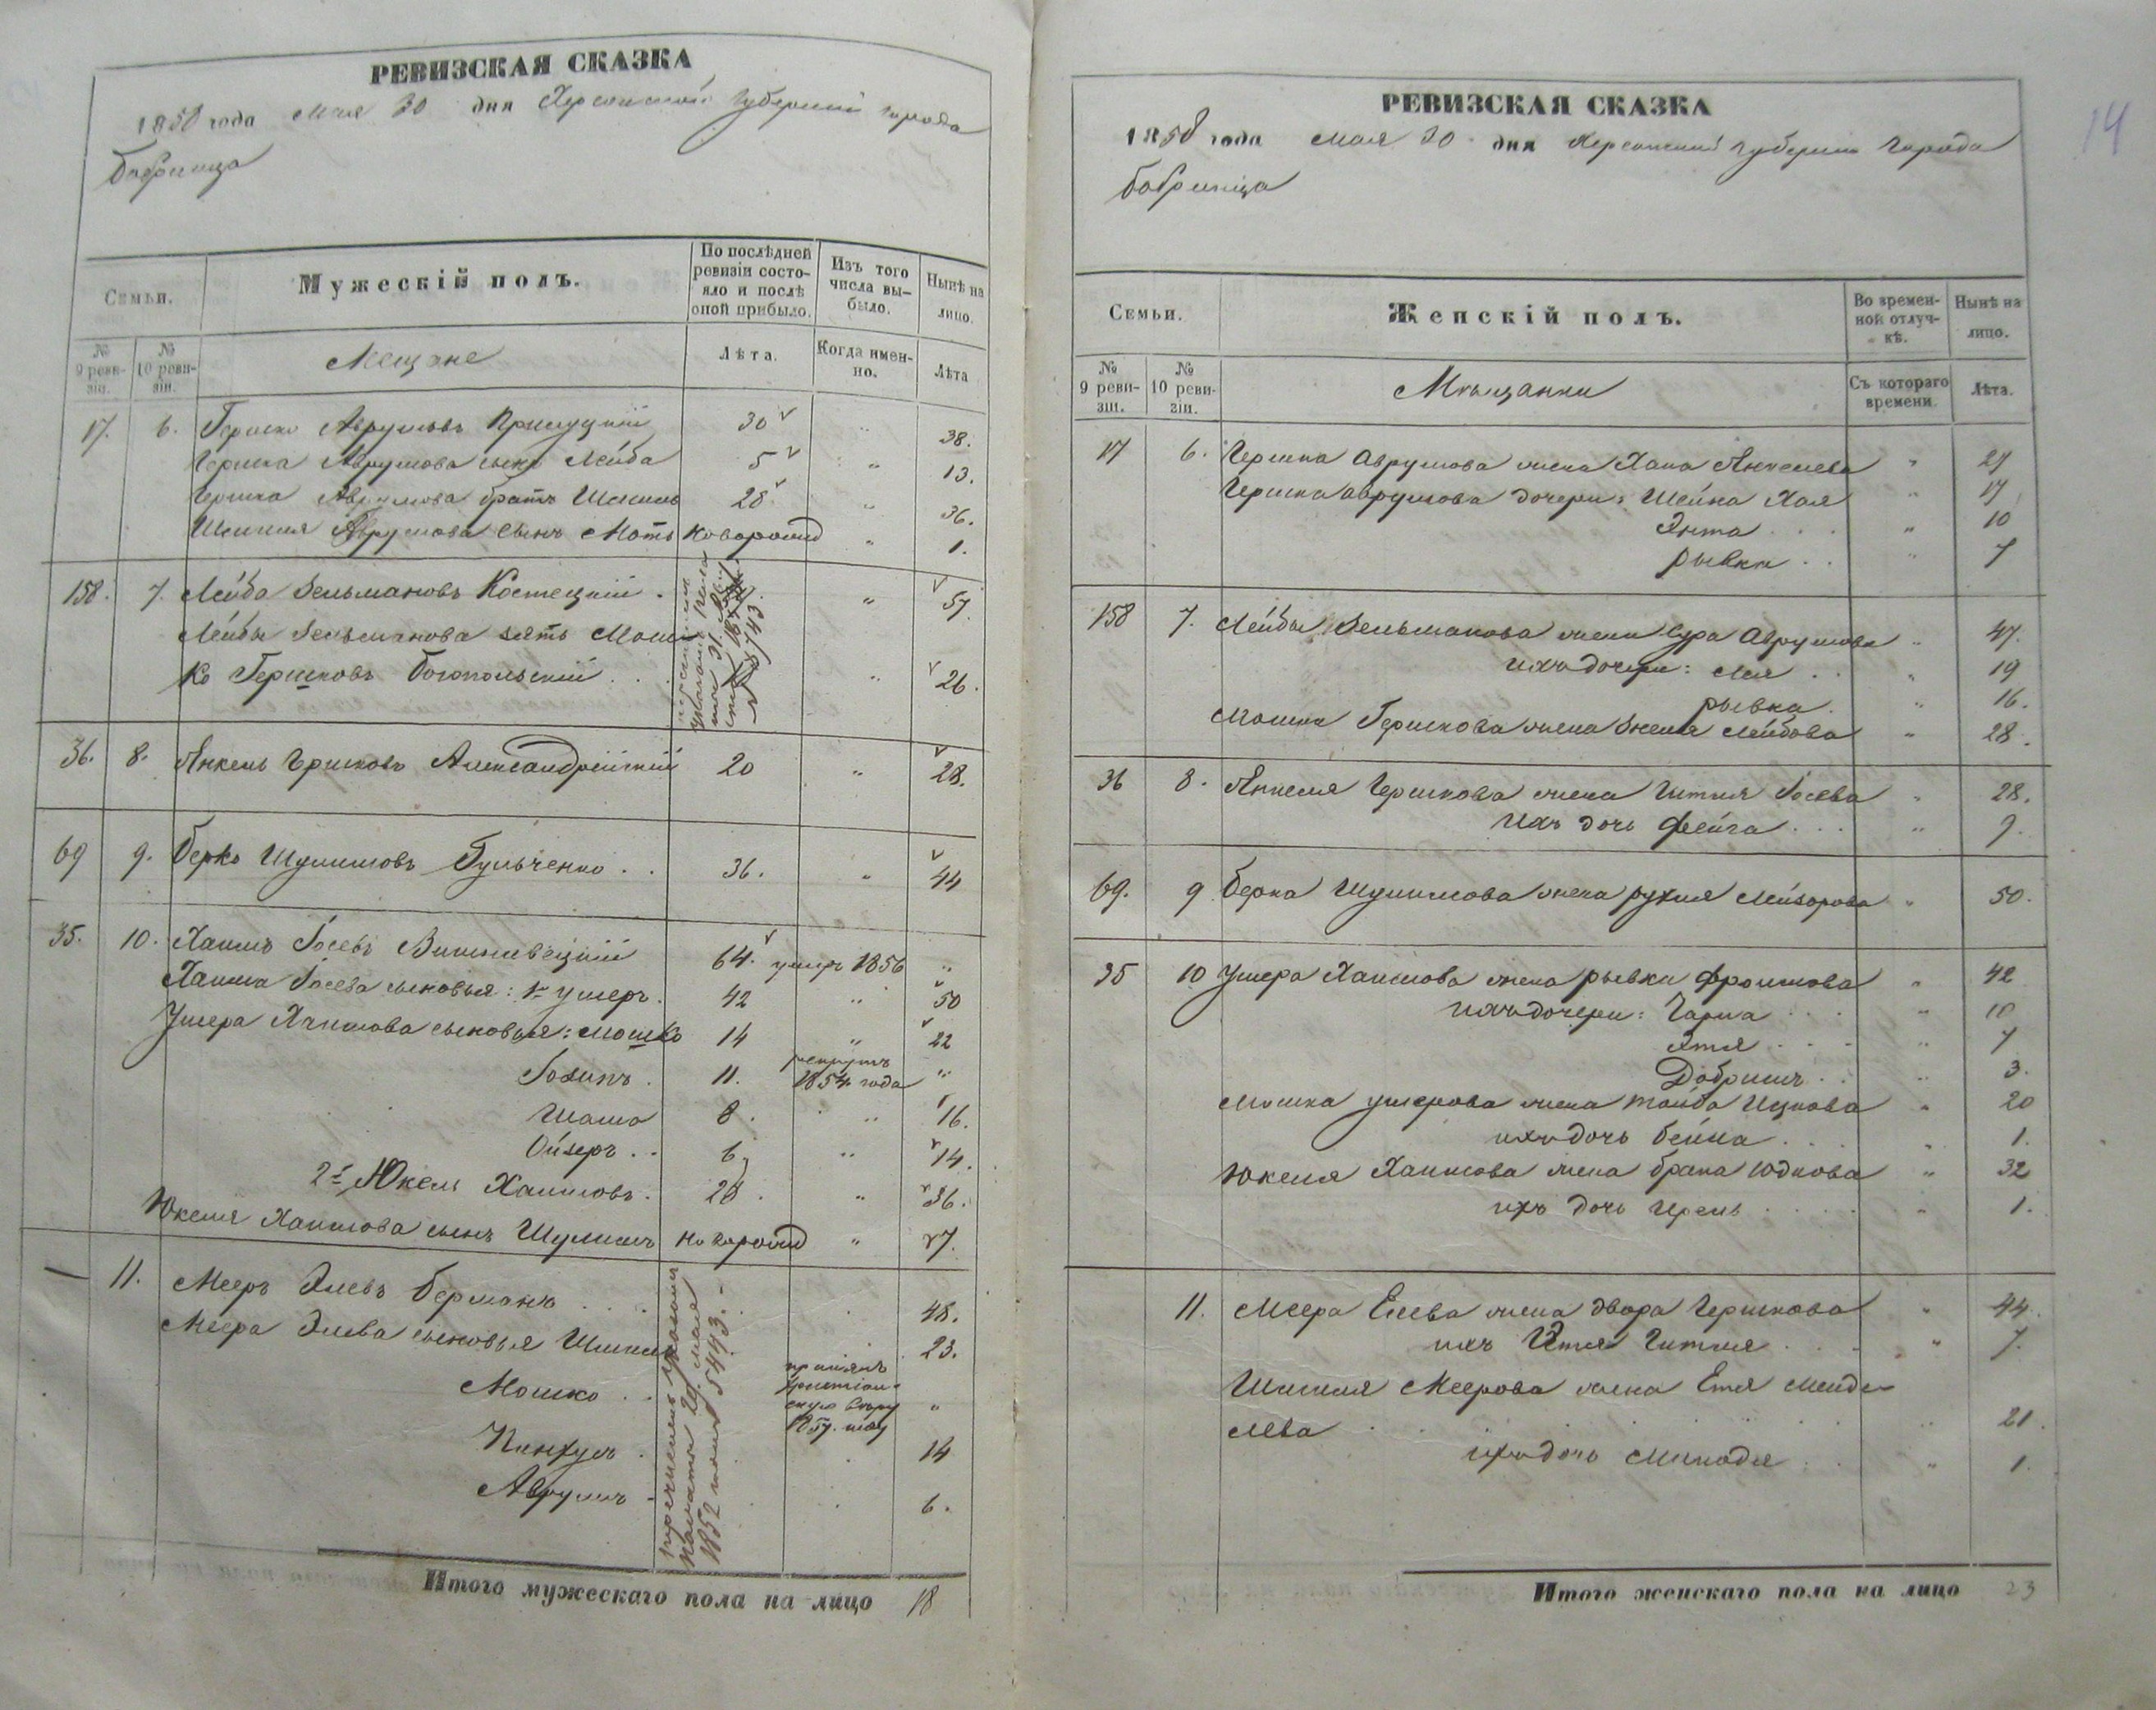 РЕВИЗСКАЯ СКАЗКА
1858 года Мая 30 дня Херсонской губернии города
Бобринца
Семьи.
Мужескій полъ.
По послѣдней ревизіи состояло и послѣ оной прибыло.
Изъ того числа выбыло.
Нынѣ на лицо.
№ 9 ревизіи.
№ 10 ревизіи.
Мещане
Лѣта.
Когда именно.
Лѣта
17. 6. Гершко Аврумовъ Прилуцкій 30 " 38.
Гершка Аврумова сынъ Лейба 5 " 13.
Гершка Аврумова братъ 28 " 36.
Аврумова сынъ Моть новорожд " 1.
158. 7. Лейба Зельмановъ Костецкій . " 57.
Лейбы Зельманова зять Мош
ко Гершковъ Богопольскій . . " 26.
36. 8. Янкель Гершковъ Александрейскій 20 " 28.
69 9. Берко Шулимовъ Гульченко . . 36. " 44
35. 10. Хаимъ Іосевъ Вишневецкій 64. умеръ 1856 "
Хаима Іосева сыновья: 1й Ушеръ. 42 " 50
Ушера Хаимова сыновья: Мошко 14 " 22
11. рекрутъ 1854 года "
8. " 16.
Ойзеръ . . 6. " 14.
2й Юкель Хаимовъ. 28. " 36.
Юкеля Хаимова сынъ Шулимъ новорожд " 7.
11. Мееръ Элевъ Берманъ . . . . 48.
Меера Элева сыновья . 23.
Мошко . . принялъ христіанскую вѣру 1857. "
Пинхусъ . . 14
Аврумъ . 6.
перечисленъ указомъ палаты 29 мая 1852 5443.
Итого мужескаго пола на лицо 18
14
РЕВИЗСКАЯ СКАЗКА
1858 года Мая 30 дня Херсонской губернии города
Бобринца
Семьи.
Женскій полъ.
Во временной отлучкѣ.
Нынѣ на лицо.
№ 9 ревизіи.
№ 10 ревизіи.
Мѣщанки
Съ котораго времени.
Лѣта.
17 6. Гершка Аврумова жена Хана Анкелева " 27
Гершка Аврумова дочери: Шейна Хая " 17
Энта . . . " 10
Рывка . . " 7
158 7. Лейбы Зельманова жена Сура Аврумова " 47.
ихъ дочери: Лея . . " 19
Рывка. " 16.
Мошка Гершкова жена Лейбова " 28.
36 8. Янкеля Гершкова жена Гитля Іосева " 28.
ихъ дочь Фейга . . . " 9.
69. 9 Берка Шулимова жена Рухля Лейзорова " 50.
35 10 Ушера Хаимова жена Рывка Фроимова " 42
ихъ дочери: . . . " 10
Этя . . . " 7
Добришъ . . " 3.
Мошка Ушерова жена Тайба Ицкова " 20
ихъ дочь Бейла . . . " 1.
Юкеля Хаимова жена Брана Юдкова " 32
ихъ дочь . . . . " 1.
11. Меера Елева жена Двора Гершкова " 44.
ихъ Гитля . . . " 7.
Меерова жена Етя Менде-
лева . . . . . " 21.
ихъ дочь . . " 1.
Итого женскаго пола на лицо 23